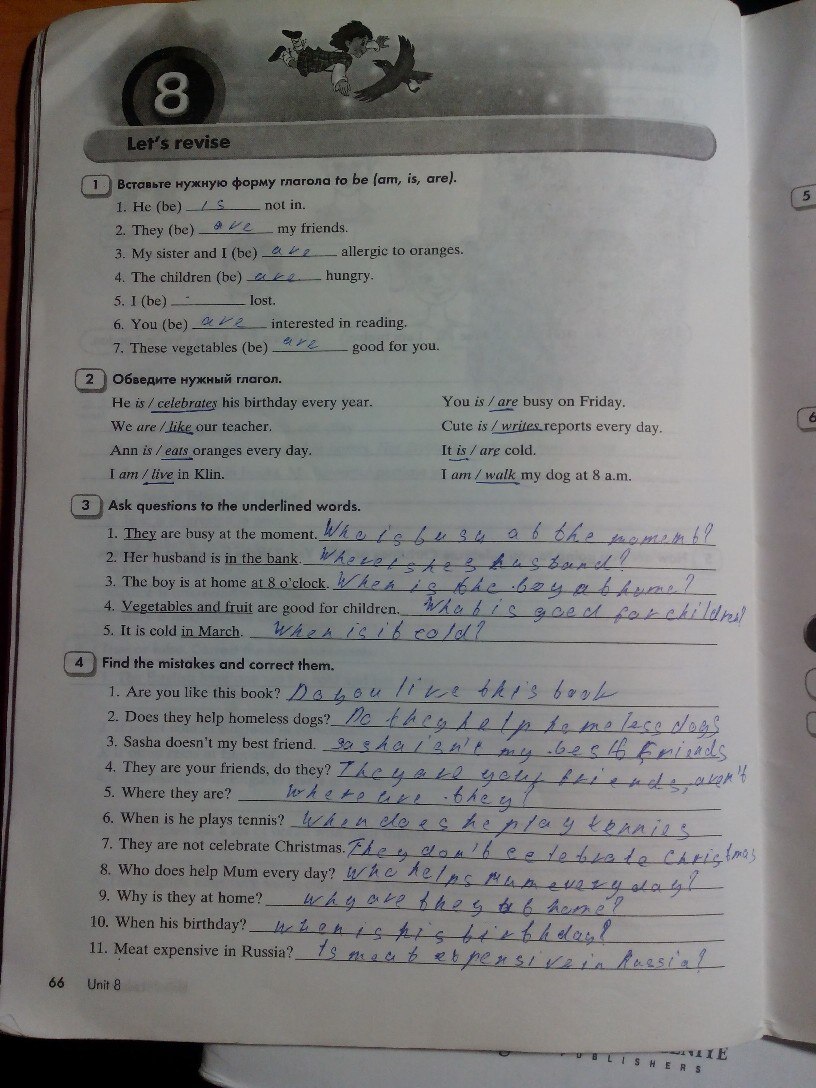 8
Let's revise
1 Вставьте нужную форму глагола to be (am, is, are).
1. He (be) is not in.
2. They (be) are my friends.
3. My sister and I (be) are allergic to oranges.
4. The children (be) are hungry.
5. I (be) lost.
6. You (be) are interested in reading.
7. These vegetables (be) are good for you.
2 Обведите нужный глагол.
He is / celebrates his birthday every year.
We are / like our teacher.
Ann is / eats oranges every day.
I am / live in Klin.
You is / are busy on Friday.
Cute is / writes reports every day.
It is / are cold.
I am / walk my dog at 8 a.m.
3 Ask questions to the underlined words.
1. They are busy at the moment. Who is busy at the moment?
2. Her husband is in the bank. Where is her husband?
3. The boy is at home at 8 o'clock. When is the boy at home?
4. Vegetables and fruit are good for children. What is good for children?
5. It is cold in March. When is it cold?
4 Find the mistakes and correct them.
1. Are you like this book? Do you like this book
2. Does they help homeless dogs? Do they help homeless dogs
3. Sasha doesn't my best friend. Sasha isn't my best friends
4. They are your friends, do they? They are your friends, aren't
5. Where they are? Where are they?
6. When is he plays tennis? When does he play tennies
7. They are not celebrate Christmas. They don't celebrate Christmas
8. Who does help Mum every day? Who helps Mum every day?
9. Why is they at home? Why are they at home?
10. When his birthday? When is his birthday?
11. Meat expensive in Russia? Is meat expensive in Russia?
66 Unit 8
5
6
PUBLISHERS